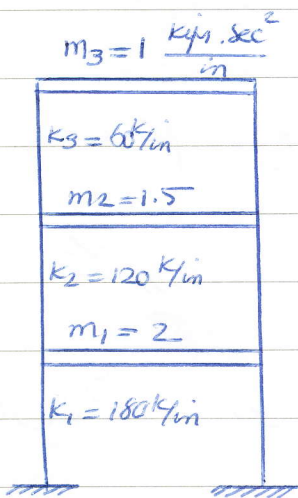 m3 = 1 kip.sec²/in
k3 = 60 k/in
m2 = 1.5
k2 = 120 k/in
m1 = 2
k1 = 180 k/in